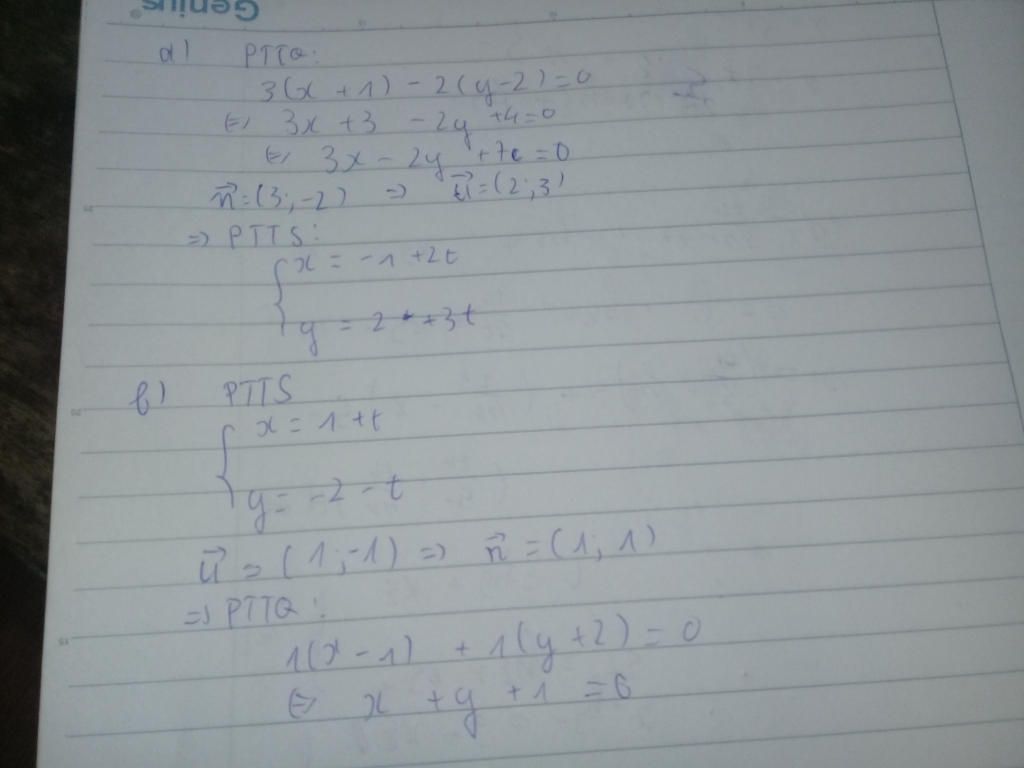 Genius®
a) PTTQ:
3(x + 1) - 2(y - 2) = 0
⇔ 3x + 3 - 2y + 4 = 0
⇔ 3x - 2y + 7 = 0
n⃗ = (3; -2) ⇒ u⃗ = (2; 3)
⇒ PTTS:
{ x = -1 + 2t
y = 2 + 3t
b) PTTS
{ x = 1 + t
y = -2 - t
u⃗ = (1; -1) ⇒ n⃗ = (1; 1)
⇒ PTTQ:
1(x - 1) + 1(y + 2) = 0
⇔ x + y + 1 = 0